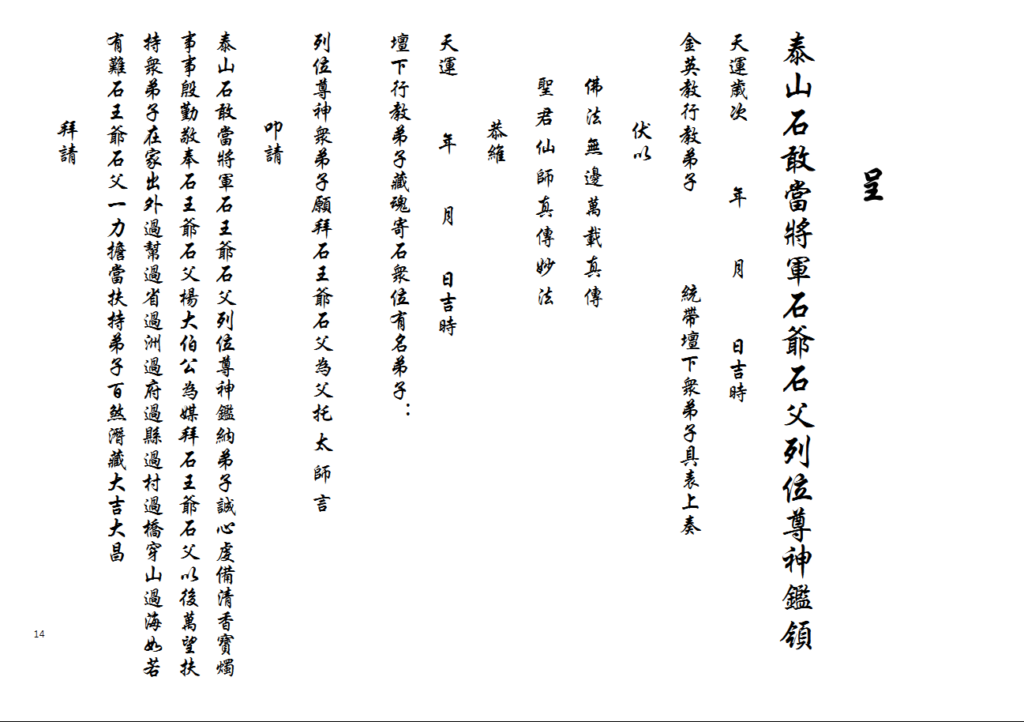 呈
泰山石敢當將軍石爺石父列位尊神鑑領
天運歲次　年　月　日吉時
金英教行教弟子　統帶壇下衆弟子具表上奏
伏以
佛法無邊萬載真傳
聖君仙師真傳妙法
恭維
天運　年　月　日吉時
壇下行教弟子藏魂寄石衆位有名弟子：
列位尊神衆弟子願拜石王爺石父為父托太師言
叩請
泰山石敢當將軍石王爺石父列位尊神鑑納弟子誠心虔備清香寶燭
事事殷勤敬奉石王爺石父楊大伯公為媒拜石王爺石父以後萬望扶
持衆弟子在家出外過幫過省過洲過府過縣過村過橋穿山過海如若
有難石王爺石父一力擔當扶持弟子百煞潛藏大吉大昌
拜請
14